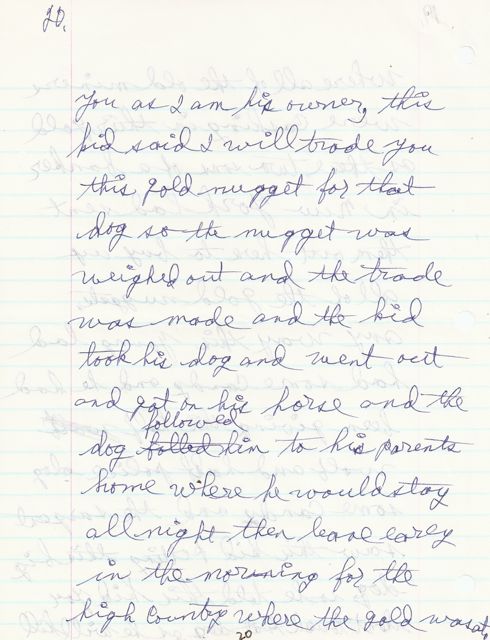 20.
you as I am his owner, this
kid said I will trade you
this gold nugget for that
dog so the nugget was
weighed out and the trade
was made and the kid
took his dog and went out
and got on his horse and the
followed
dog him to his parents
home where he would stay
all night then leave earey
in the morning for the
high country where the gold was at
20